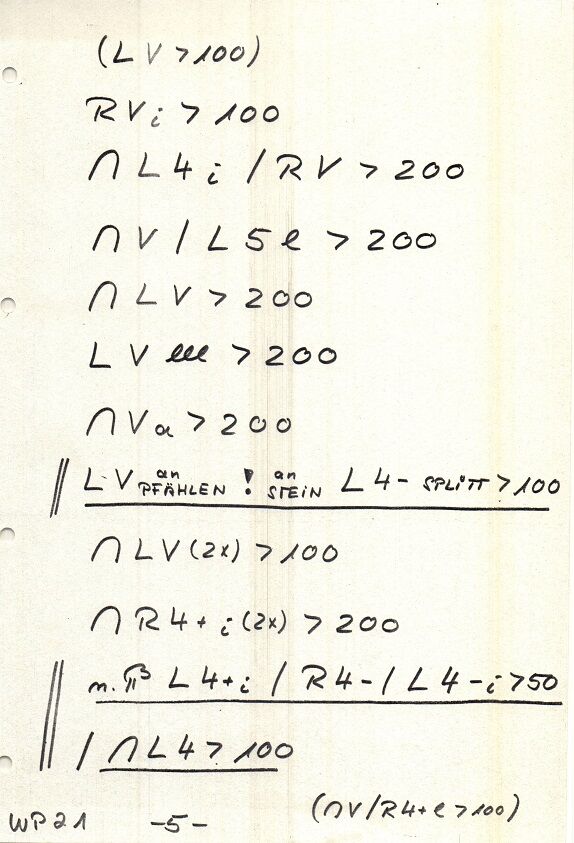 (LV > 100)
RVi > 100
∩ L4i / RV > 200
∩ V / L5e > 200
∩ LV > 200
LV eee > 200
∩ Va > 200
LV an PFÄHLEN ! an STEIN L4- SPLITT > 100
∩ LV (2x) > 100
∩ R4+i (2x) > 200
n. L4+i / R4- / L4-i > 50
/ ∩ L4 > 100
(∩V/R4+e > 100)
WP21 -5-